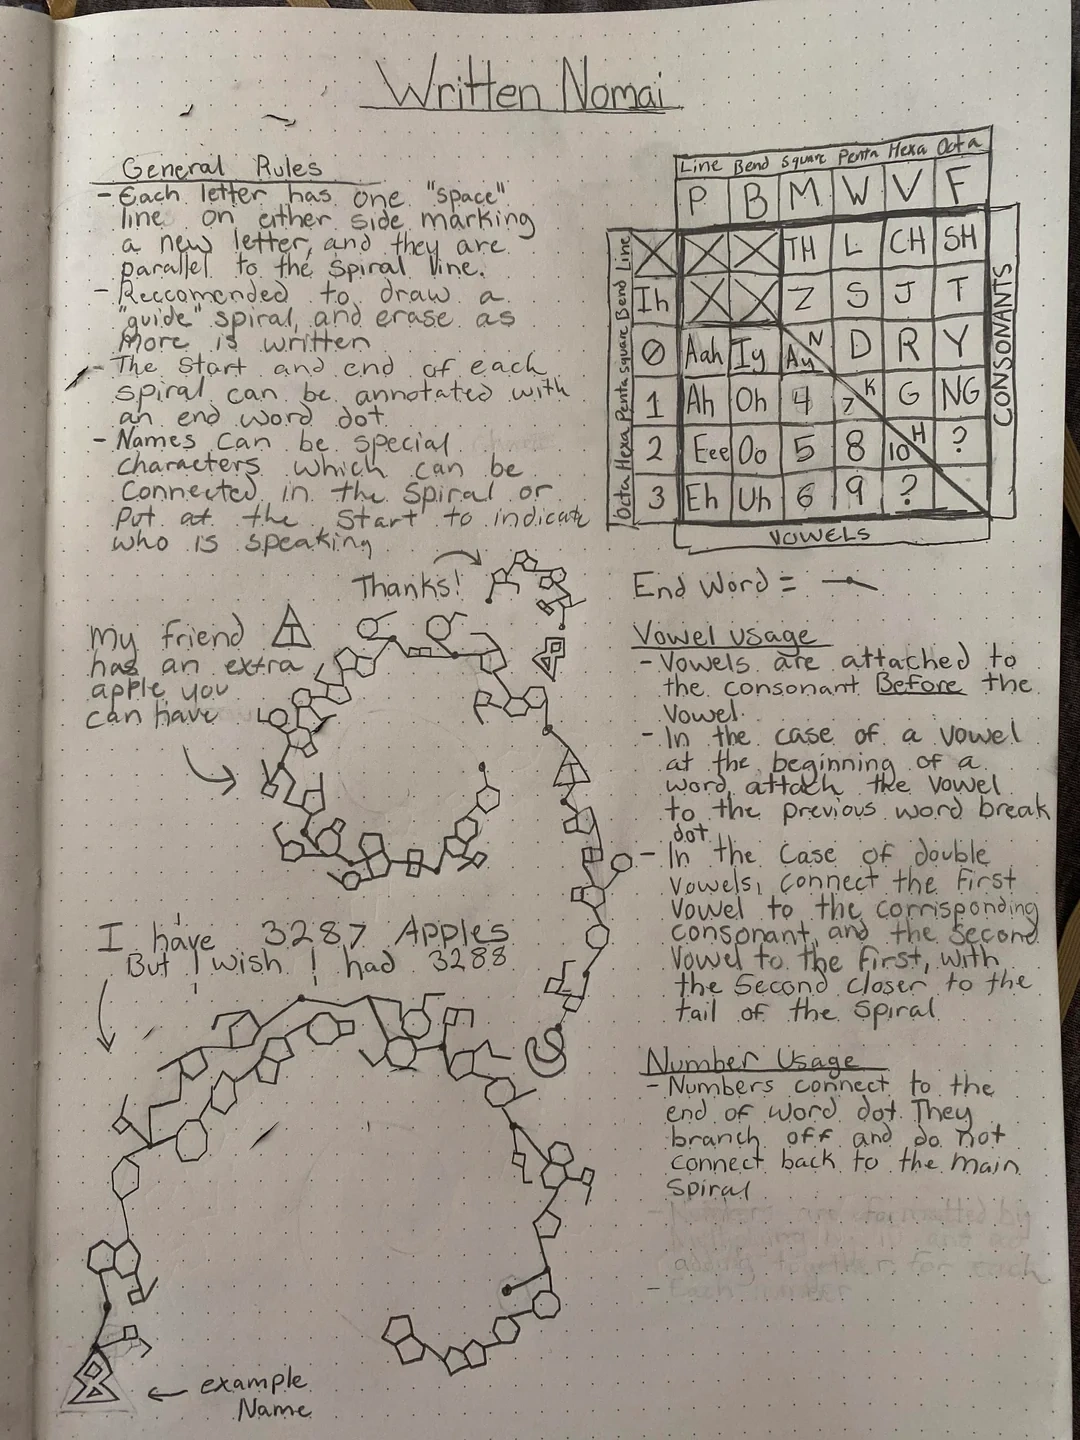 Written Nomai
General Rules
- Each letter has one "space"
line on either side marking
a new letter, and they are
parallel to the spiral line.
- Reccomended to draw a
"guide" spiral, and erase as
more is written
- The start and end of each
spiral can be annotated with
an end word dot
- Names can be special
characters which can be
connected in the spiral or
put at the start to indicate
who is speaking
Line Bend Square Penta Hexa Octa
P B M W V F
TH L CH SH
Ih Z S J T
0 Aah Iy Au N D R Y
1 Ah Oh 4 7 K G NG
2 Eee Oo 5 8 10 H ?
3 Eh Uh 6 9 ?
Line
Bend
square
Penta
Hexa
Octa
CONSONANTS
VOWELS
Thanks!
My friend
has an extra
apple you
can have
End Word =
Vowel usage
- Vowels are attached to
the consonant Before the
Vowel.
- In the case of a vowel
at the beginning of a
word, attach the vowel
to the previous word break
dot.
- In the case of double
vowels, connect the first
vowel to the corrisponding
consonant, and the second
vowel to the first, with
the second closer to the
tail of the spiral
I have 3287 Apples
But I wish I had 3288
Number Usage
- Numbers connect to the
end of word dot. They
branch off and do not
connect back to the main
spiral
- Each number
example
Name